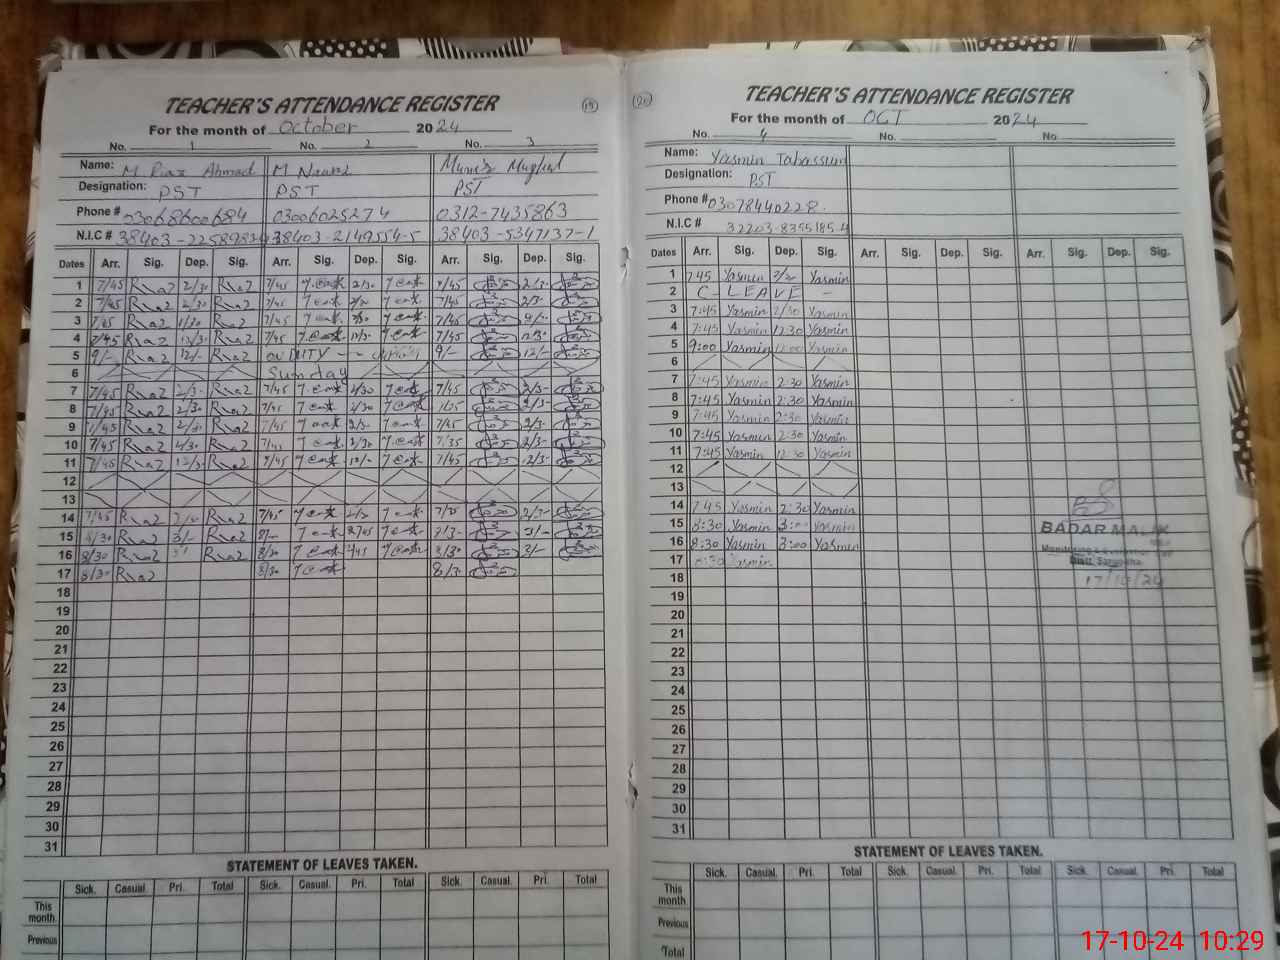 TEACHER'S ATTENDANCE REGISTER
19
For the month of October 2024
No. 1 No. 2 No. 3
Name: M Riaz Ahmad M Nawaz Mughal
Designation: PST PST PST
Phone # 03068600684 03006025274 0312-7435863
N.I.C # 38403-2149554-5 38403-5347137-1
Dates Arr. Sig. Dep. Sig. Arr. Sig. Dep. Sig. Arr. Sig. Dep. Sig.
1 7/45 Riaz 2/30 Riaz 7/45 2/30 7/45 2/3-
2 7/45 Riaz 2/30 Riaz 7/45 7/45 2/3-
3 7/45 Riaz Riaz 7/45 7/45
4 7/45 Riaz 12/3- Riaz 7/45 7/45 12/3-
5 9/- Riaz 12/- Riaz ON DUTY 9/- 12/-
6 Sunday
7 7/45 Riaz 2/3- Riaz 7/45 2/30 7/45 2/3-
8 7/45 Riaz 2/30 Riaz 7/45 2/30 2/3-
9 7/45 Riaz 2/3- Riaz 7/45 2/3- 7/45 2/3-
10 7/45 Riaz 2/30 Riaz 7/45 2/30 7/35 2/3-
11 7/45 Riaz 12/3- Riaz 7/45 7/45 12/3-
12
13
14 7/45 Riaz Riaz 7/45 2/3-
15 8/30 Riaz 3/- Riaz 8/- 3/-
16 8/30 Riaz 3/- Riaz 8/30 8/30 3/-
17 8/30 Riaz 8/30 8/3-
18
19
20
21
22
23
24
25
26
27
28
29
30
31
STATEMENT OF LEAVES TAKEN.
Sick. Casual. Pri. Total Sick. Casual. Pri. Total Sick. Casual. Pri. Total
This month.
Previous
20
TEACHER'S ATTENDANCE REGISTER
For the month of OCT 2024
No. 4 No. No
Name: Yasmin Tabassum
Designation: PST
Phone # 03078440228.
N.I.C # 32203-8355185-4
Dates Arr. Sig. Dep. Sig. Arr. Sig. Dep. Sig. Arr. Sig. Dep. Sig.
1 7:45 Yasmin Yasmin
2 C. LEAVE -
3 7:45 Yasmin 2/30 Yasmin
4 7:45 Yasmin 12:30 Yasmin
5 9:00 Yasmin 12:00 Yasmin
6
7 7:45 Yasmin 2:30 Yasmin
8 7:45 Yasmin 2:30 Yasmin
9 7:45 Yasmin 2:30 Yasmin
10 7:45 Yasmin 2:30 Yasmin
11 7:45 Yasmin 12:30 Yasmin
12
13
14 7:45 Yasmin 2:30 Yasmin
15 8:30 Yasmin 3:00 Yasmin
16 8:30 Yasmin 3:00 Yasmin
17 8:30 Yasmin
18
19
20
21
22
23
24
25
26
27
28
29
30
31
BADAR MALIK
Distt. Sargodha
17/10/24
STATEMENT OF LEAVES TAKEN.
Sick. Casual. Pri. Total Sick. Casual. Pri. Total Sick. Casual. Pri. Total
This month.
Previous
Total
17-10-24 10:29